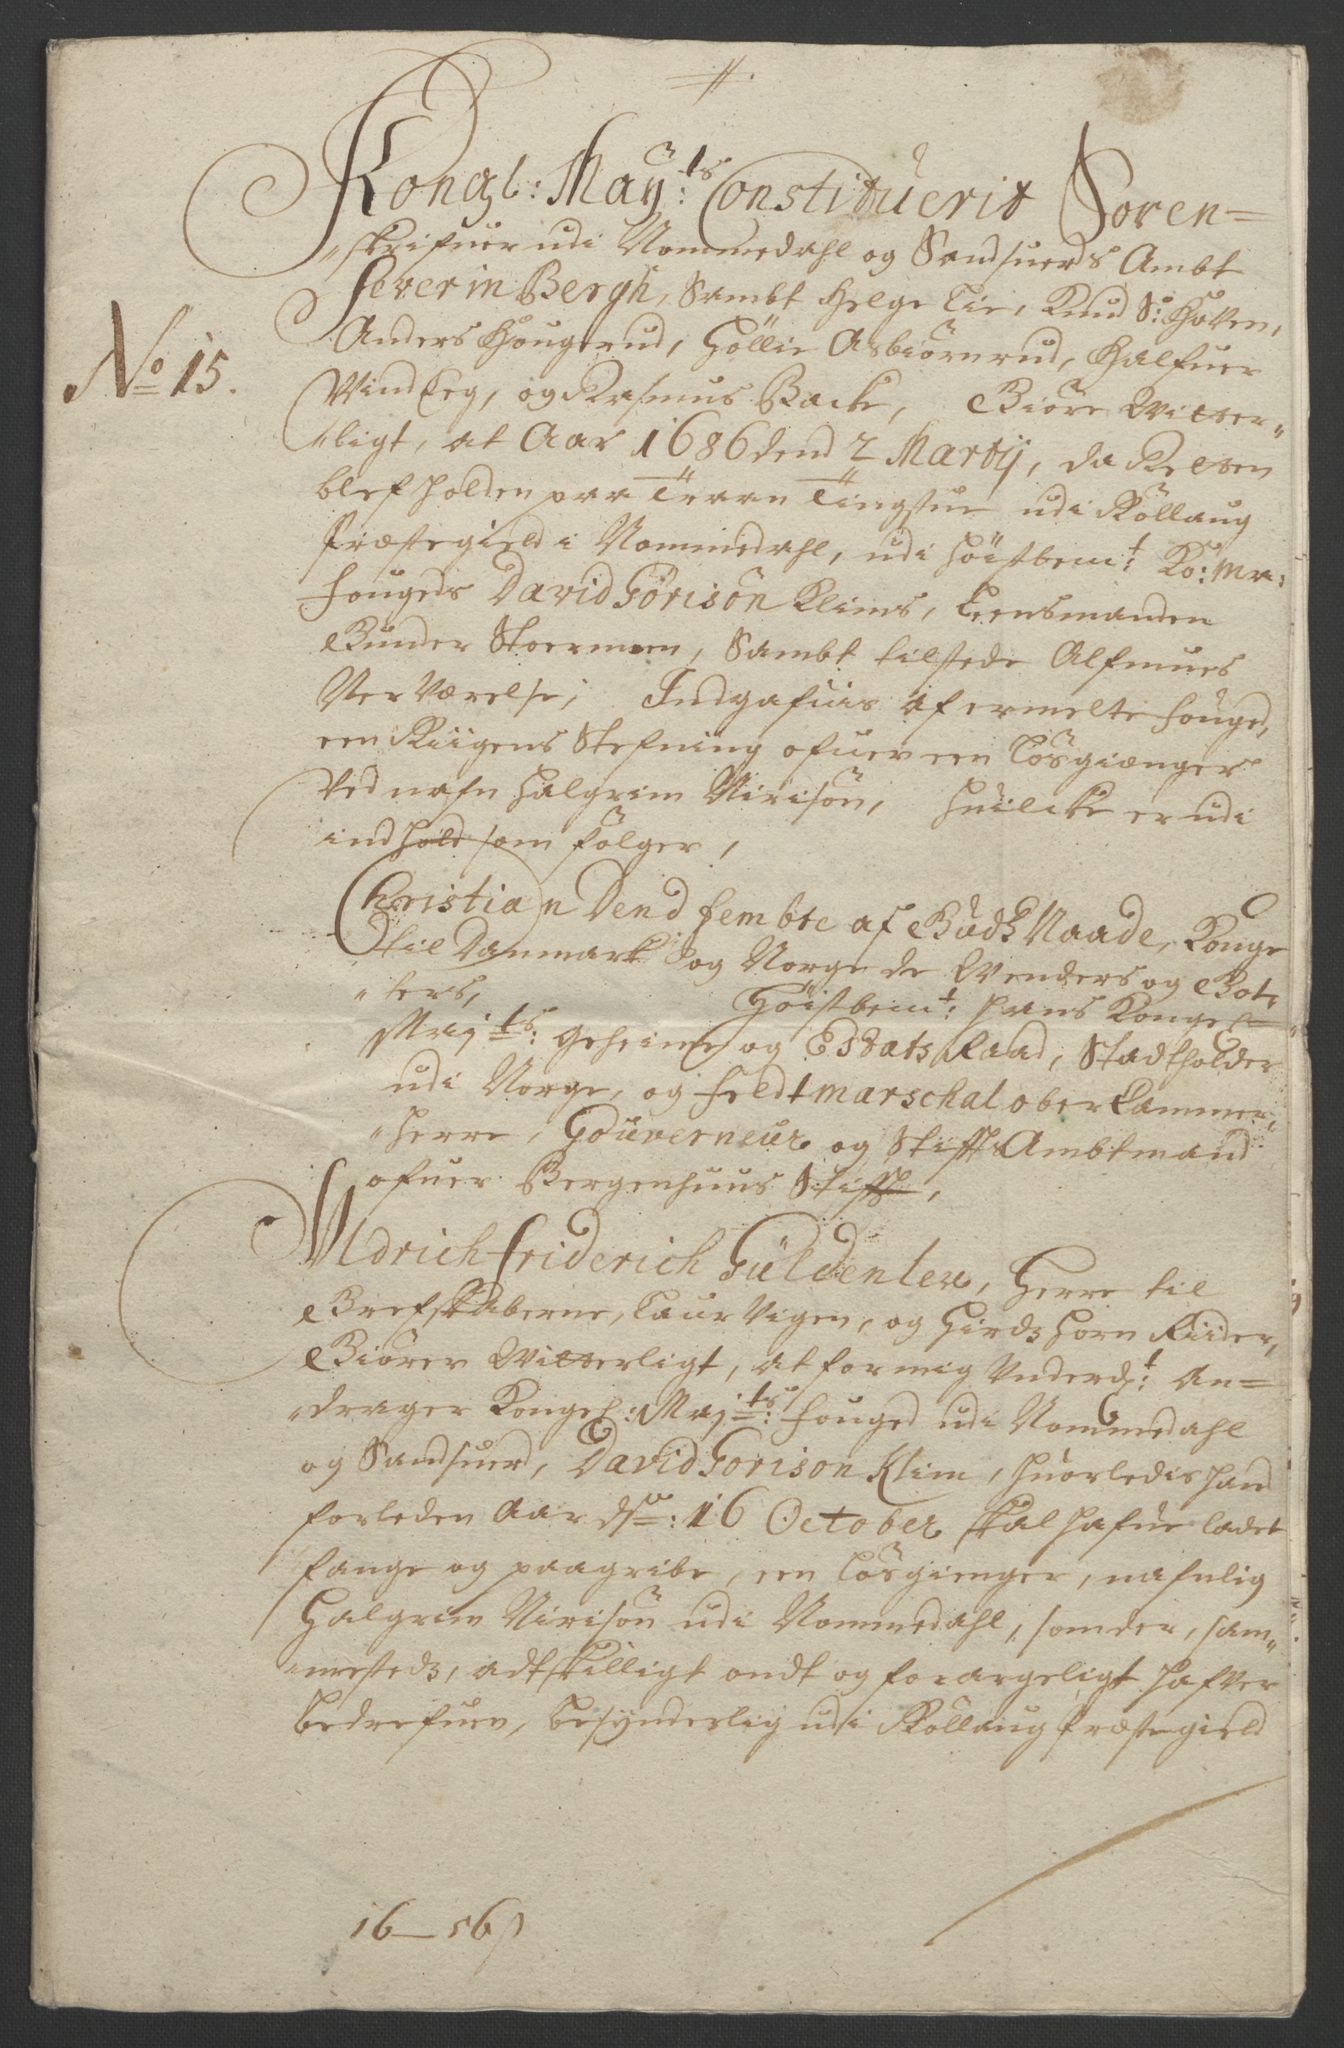 Kongl: Maÿ:ts Constituerit Soren=
"skrifuer udi Nommedahl og Sandsuerds Ambt
Severin Bergh, Sambt Helge Lie, Knud S: Hoven,
Anders Hougerud, Höllie Asbiörnrud, Halfuer
No 15.
Vindeeg, og Rasmus Backe, Giöre Witter"
"ligt, at Aar 1686 dend 2 Martij, da Retten
blef holden paa Traan Tingstue udi Rollaug
Præstegield i Nommedahl, udi höistbem:t Ko: Ma:
Fougeds David Görisön Klims, Leensmanden
Gunder Stoermoen, Sambt tilstede Almues
Nerværelse; Indgafuis af ermelte Fouged,
een Rigens Stefning ofuer een Lösgiænger
Ved nafn Halgrim Nirisön, huilcke er udi
indhold som fölger,
Christian Dend fembte af Guds Naade, Konge
til Danmark og Norge de Wenders og Got"
"ters, Höistbem:t hans Kongel:
Maj:ts: Geheime og Estats Raad, Stadtholder
udi Norge, og Feldtmarschal ober Cammer"
"herre, Gouverneur og Stiffts Ambtmand
ofuer Bergenhuus Stifft,
Uldrich Friderich Güldenlew, Herre til
Grefskaberne, Laurvigen, og Hirdzhorn Riider,
Giörer Witterligt, at for mig Underd:t An=
"drager Kongel: Maj:ts: Fouged udi Nommedahl
og Sandsuerd, David Gorison Klim, huorledis hand
forleden Aar ds: 16 October skal hafue ladet
fange og paagribe, een Lösgienger, nafnlig
Halgrim Nirisön udi Nommedahl, som der, sam"
"mesteds, adtskilligt ondt og forargeligt hafver
bedrefuen, besynderlig udi Rollaug Præstegield
16 — 56 ß